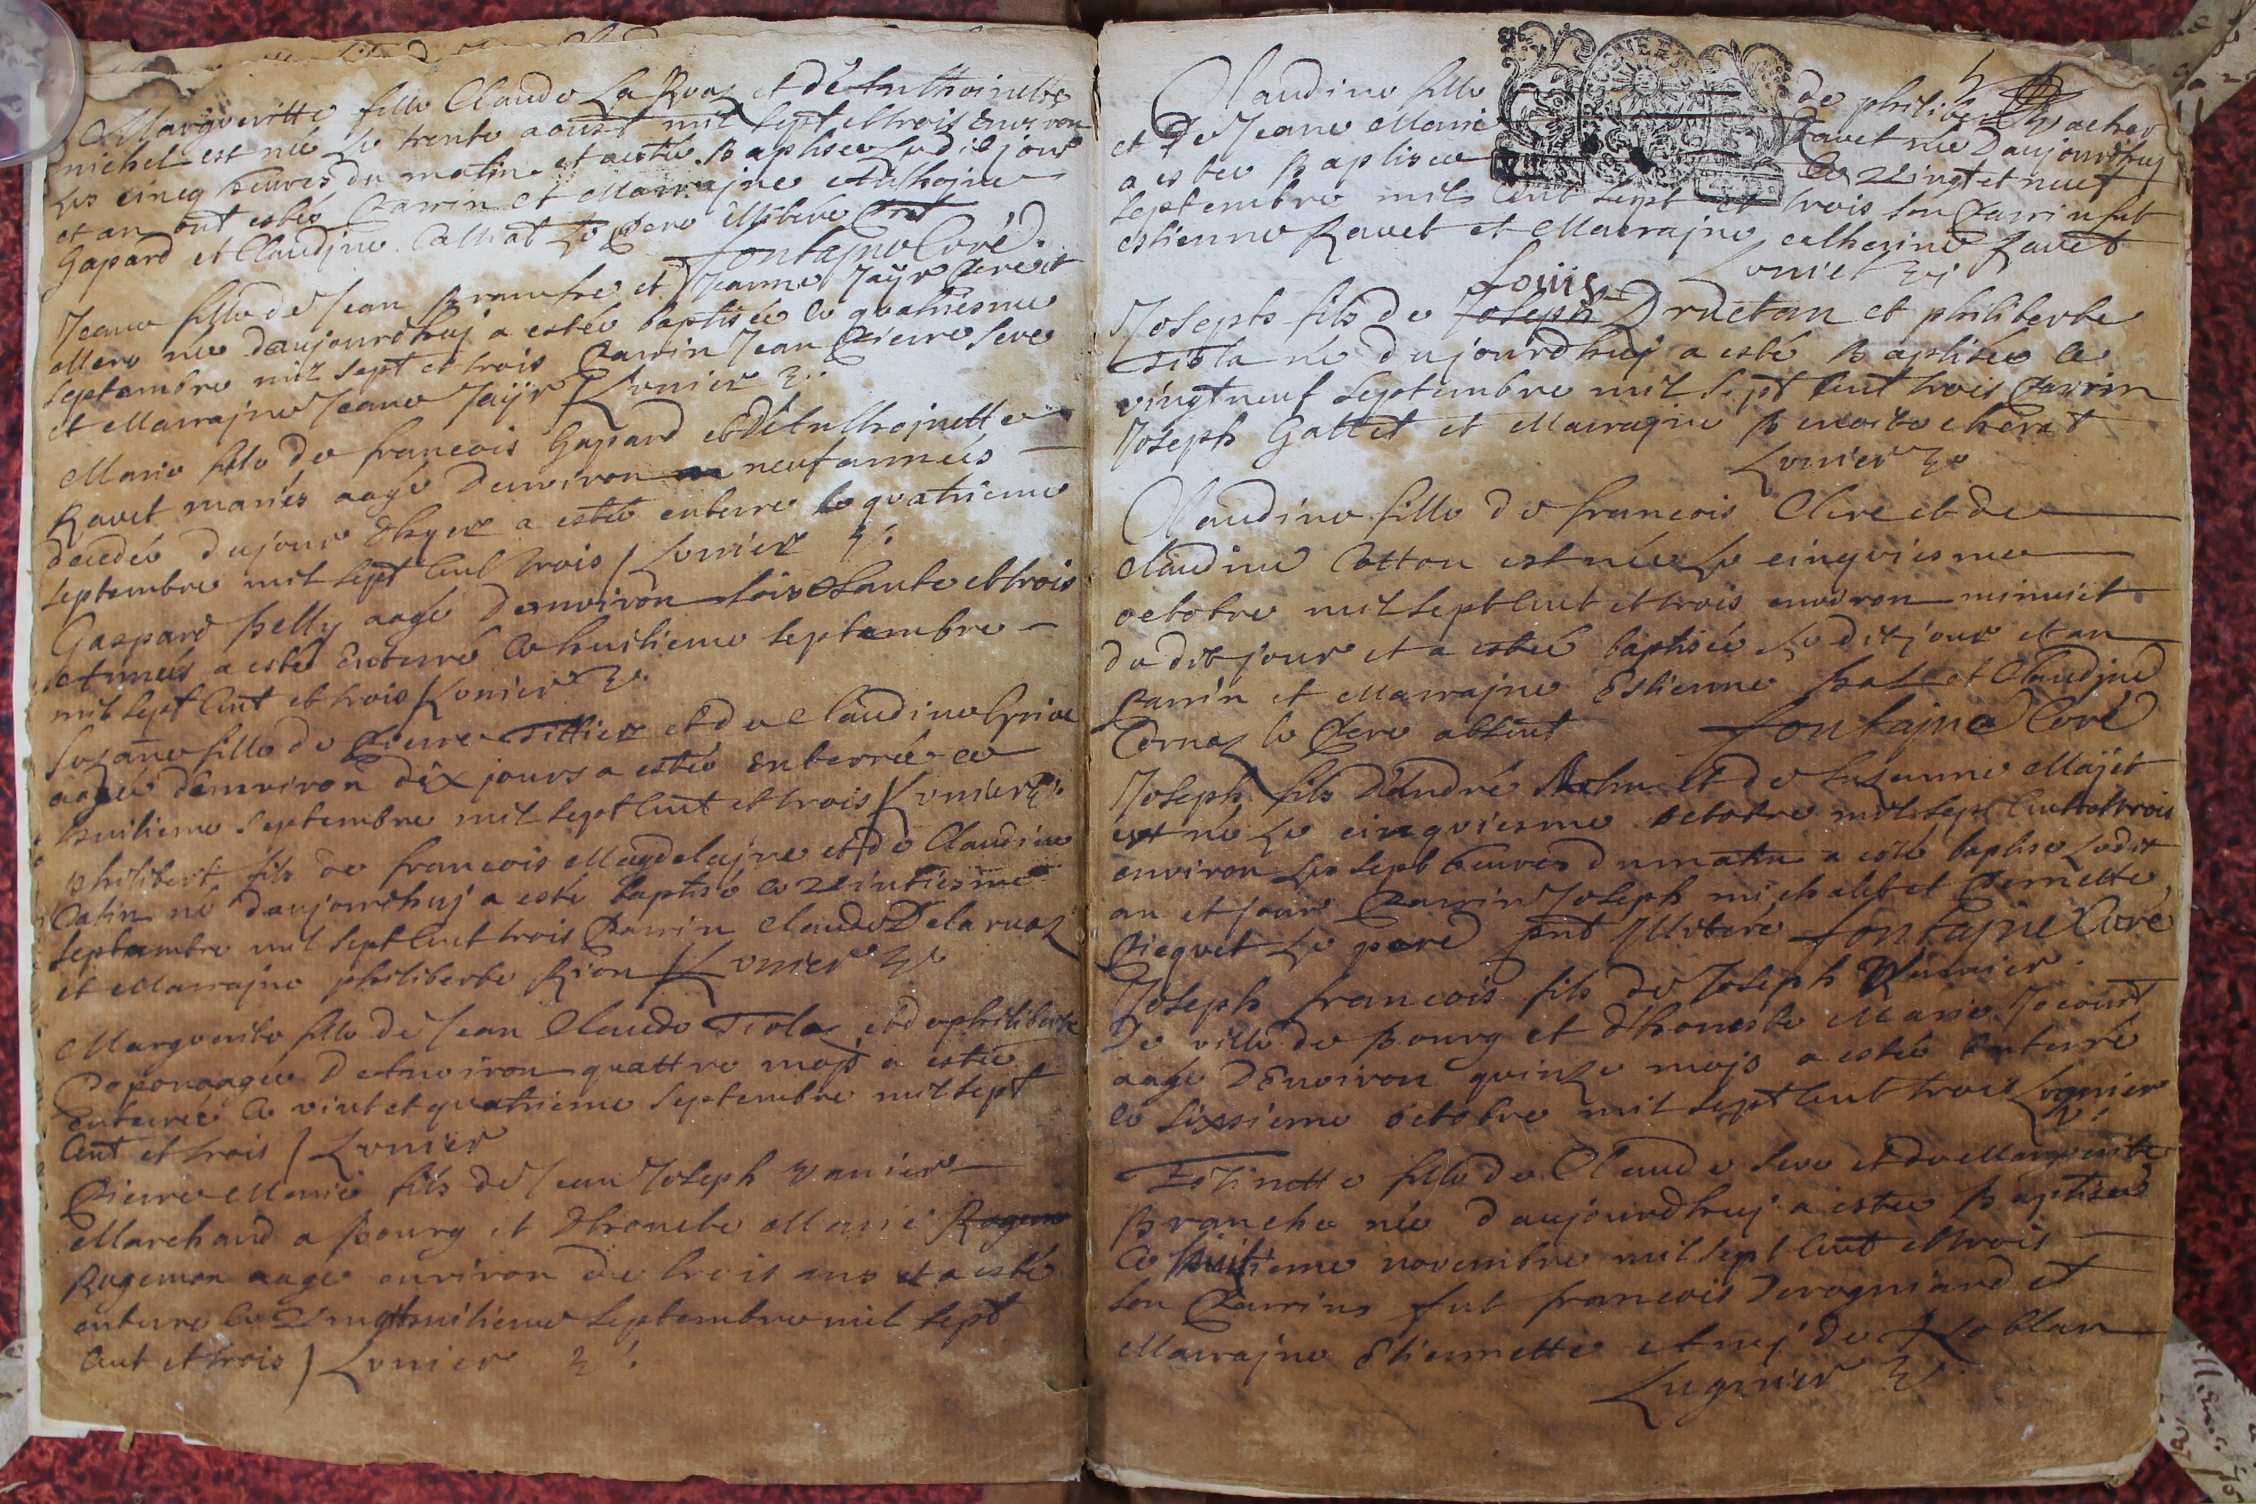 Margueritte fille Claude La Ruaz et de Anthoinette
michel est née le trente aoust mil sept et trois environ
les cincq heures du matin et a estée Baptisee ledit jour
et an ont estés Parrin et Marrajne Anthojne
Gapard et Claudine Calliat le Pere Illiteré
fontajne Curé
Jeane fille de Jean Branche et Jeanne Jaÿr Pere et
Mere née daujourdhuj a estée baptisée le quatriesme
Septembre mil sept et trois Parrin Jean Pierre Seve
et Marrajne Jeane Jaÿr / Lvnier
Marie fille de francois Gapard et de Anthojnette
Ravet mariés aagée denviron neuf années
decedée dujour dhyer a estée enterre le quatrieme
septembre mil sept cent trois / Lvnier
Gaspard Belly aagé denviron soixsante et trois
Années a esté Enterré le huitieme septembre
mil sept cent et trois / Lvnier
Susane fille de Pierre Tillier et de Claudine
aagée denviron dix jours a estée Enterrée ce
huitieme septembre mil sept cent et trois / Lvnier
philibert fils de francois Magdelajne et de Claudine
Catin né daujourdhuj a esté baptisé ce
septembre mil sept cent trois Parrin Claude Delaruaz
et Marrajne philiberte Rion / Lvnier
Marguerite fille de Jean Claude Tiola et de philiberte
Dopon aagee denviron quattre mojs a estée
enterrée ce vint et quatrieme septembre mil sept
cent et trois / Lvnier
Pierre Marie fils de Jean Joseph vanier
Marchand a Bourg et dhoneste Marie Rogem
Rugemon aagé environ de trois ans et a esté
enterre ce vingthuitieme septembre mil sept
cent et trois / Lvnier
Claudine fille de philibert
et De Jeane Marie Ravet née Daujourdhuj
a estee Baptisee Ce vingt et neuf
septembre mil cent sept et trois son Parrin fut
estienne Ravet et Marrajne catherine Ravet
Lvnier
Josepts fils de Joseph Louis Druetan et philiberte
Tiola né dujourdhuj a esté Baptisée ce
vingt neuf septembre mil sept cent trois Parrin
Joseph Gallet et Marrajne Benoite cherat
Lvnier
Claudine fille de francois Clere et de
Claudine Cotton est née le cinqviesme
octobre mil sept cent et trois environ minuict
du dit jour et a estée baptisée le dit jour et an
Parrin et Marrajne Estienne et Claudine
Cornaz le Pere absent fontajne Curé
Joseph fils d'André et de Susanne Majet
est né le cinqviesme octobre mil sept cent et trois
environ les sept heures du matin a esté baptisé ledit
an et jour Parrin Joseph michalet et Pernette
Picquet le pere pnt Illiteré fontajne Curé
Joseph francois fils de Joseph
De ville de Bourg et dhoneste Marie
aagé denviron quinze mojs a esté Enterré
ce sixsieme octobre mil sept cent trois Lvgnier
Estinette fille de Claude Seve et de Marguerite
Branche née daujourdhuj a estée Baptisee
ce huitieme novembre mil sept cent et trois
son Parrins fut francois Derogniard et
Marrajne Etiennette
Lugnier